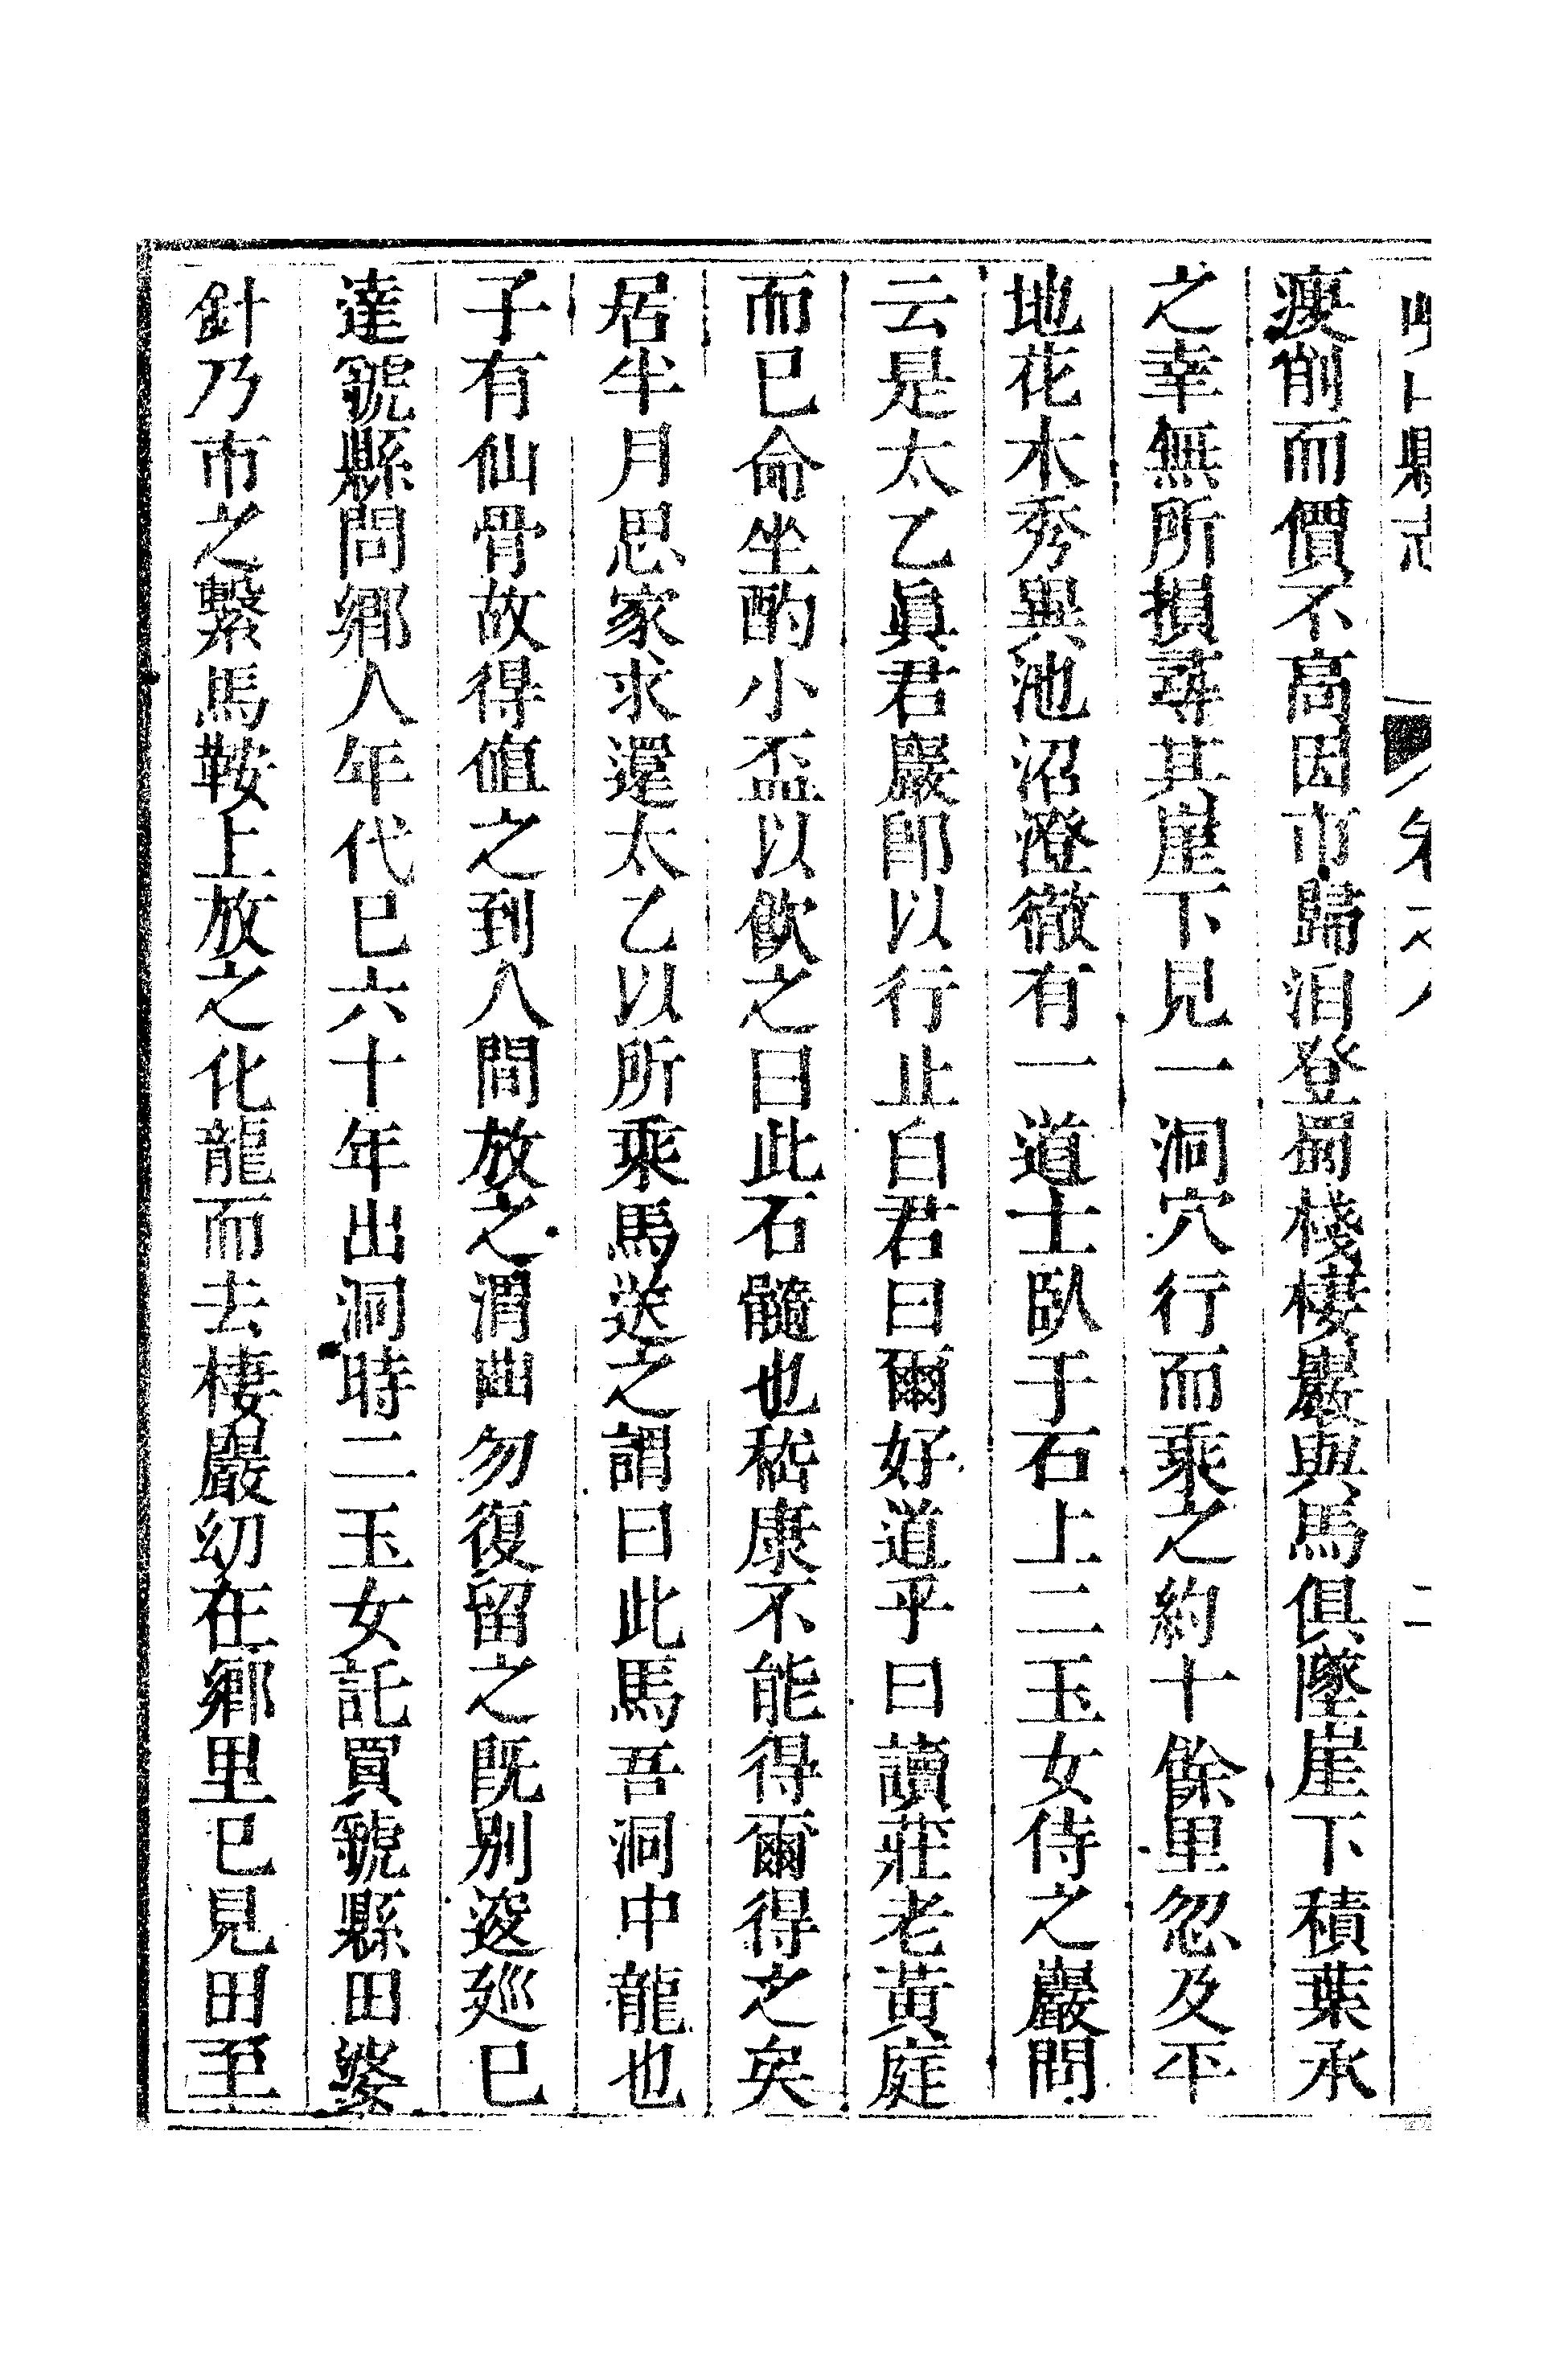 瘦削而價不高因市歸洎登蜀棧棲巖與馬俱墜崖下積葉承
之幸無所損尋其崖下見一洞穴行而乘之約十餘里忽及平
地花木秀異池沼澄徹有一道士臥于石上二玉女侍之巖問
云是太乙眞君巖卽以行止白君曰爾好道乎曰讀莊老黃庭
而已命坐酌小盃以飮之曰此石髓也嵇康不能得爾得之矣
居半月思家求還太乙以所乘馬送之謂曰此馬吾洞中龍也
子有仙骨故得値之到人間放之渭曲勿復留之既別逡廵已
達虢縣問鄉人年代已六十年出洞時二玉女託買虢縣田婆
針乃市之繫馬鞍上放之化龍而去棲巖幼在鄉里已見田至